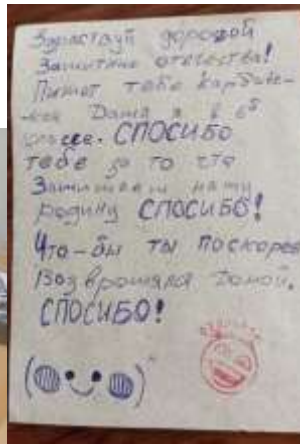 Здраствуй дорогой
Защитник отечества!
Пишет тебе
Даша я в 6Б
классе. СПОСИБО
тебе за то что
Защищаеш нашу
родину СПОСИБО!
Что-бы ты поскорее
Возврощался Домой.
СПОСИБО!